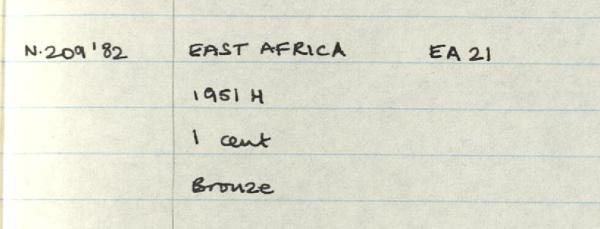 N.209'82 EAST AFRICA EA 21
1951 H
1 cent
Bronze